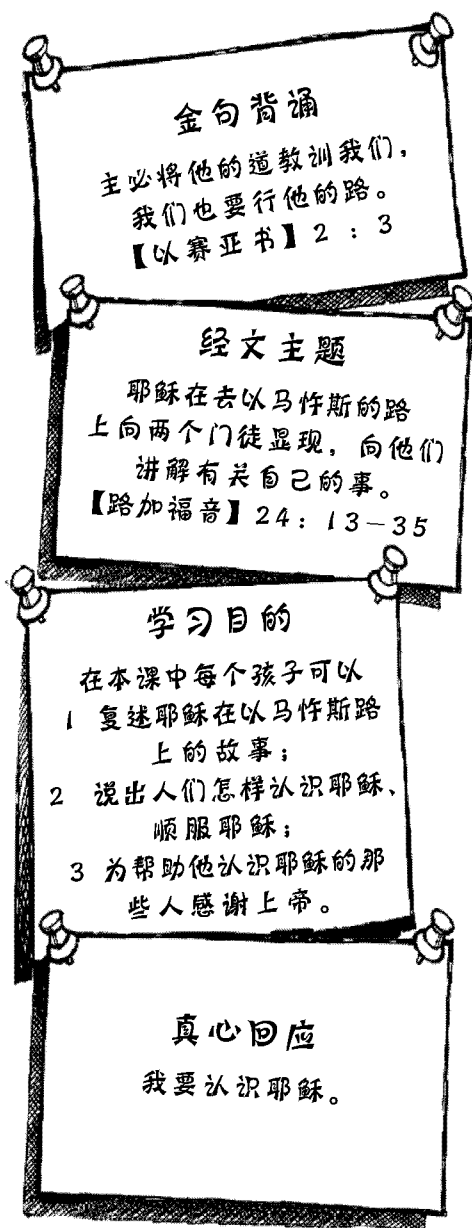 金句背诵
主必将他的道教训我们，
我们也要行他的路。
【以赛亚书】2：3
经文主题
耶稣在去以马忤斯的路
上向两个门徒显现，向他们
讲解有关自己的事。
【路加福音】24：13—35
学习目的
在本课中每个孩子可以
1 复述耶稣在以马忤斯路
上的故事；
2 说出人们怎样认识耶稣、
顺服耶稣；
3 为帮助他认识耶稣的那
些人感谢上帝。
真心回应
我要认识耶稣。